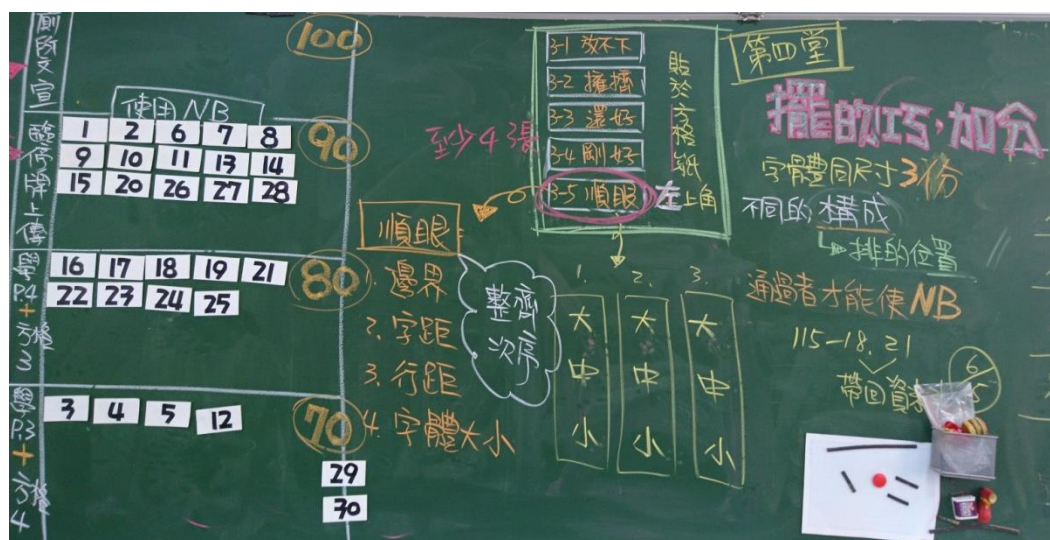 廁所文宣
臨停牌上傳
學P.4+方格3
學P.3+方格4
100
使用NB
90
1 2 6 7 8
9 10 11 13 14
15 20 26 27 28
80
16 17 18 19 21
22 23 24 25
70
3 4 5 12
29
30
至少4張
3-1 放不下
3-2 擁擠
3-3 還好
3-4 剛好
3-5 順眼
貼於方格紙
左上角
順眼
1. 邊界
2. 字距
3. 行距
4. 字體大小
整齊
次序
1. 2. 3.
大 大 大
中 中 中
小 小 小
第四堂
擺的巧·加分
字體同尺寸3份
不同的構成
排的位置
通過者才能使NB
115-18.21
帶回資
6/5